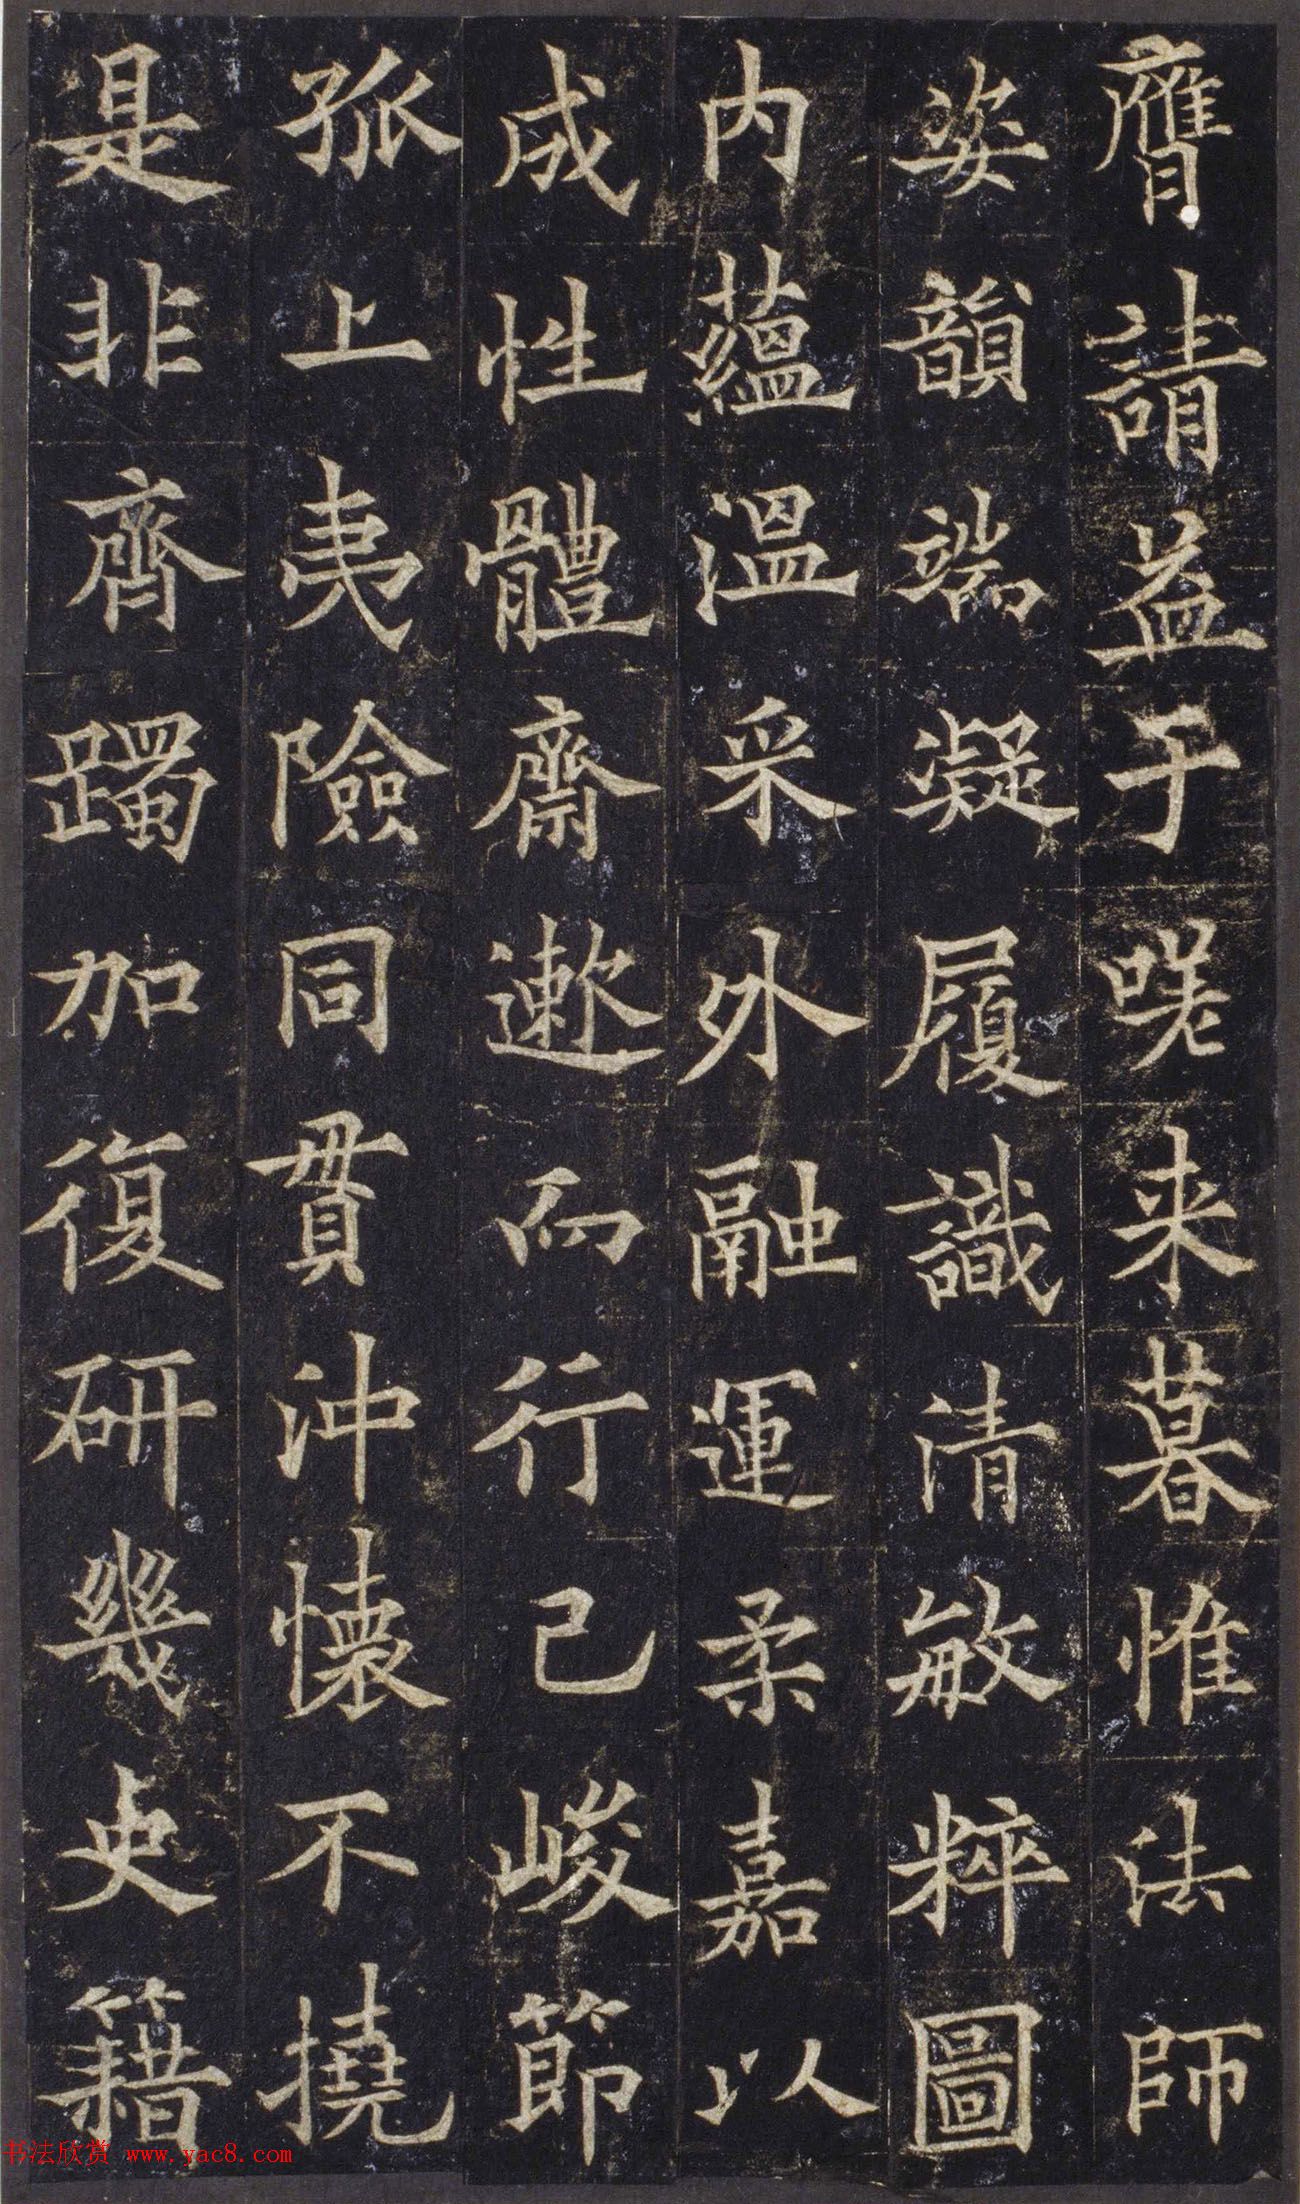 膺請益于嗟来暮惟法師
姿韻端凝履識清敏粹圖
内蘊温采外融運柔嘉以
成性體齋遬而行己峻節
孤上夷險同貫沖懷不撓
是非齊躅加復研幾史籍
书法欣赏 www.yac8.com